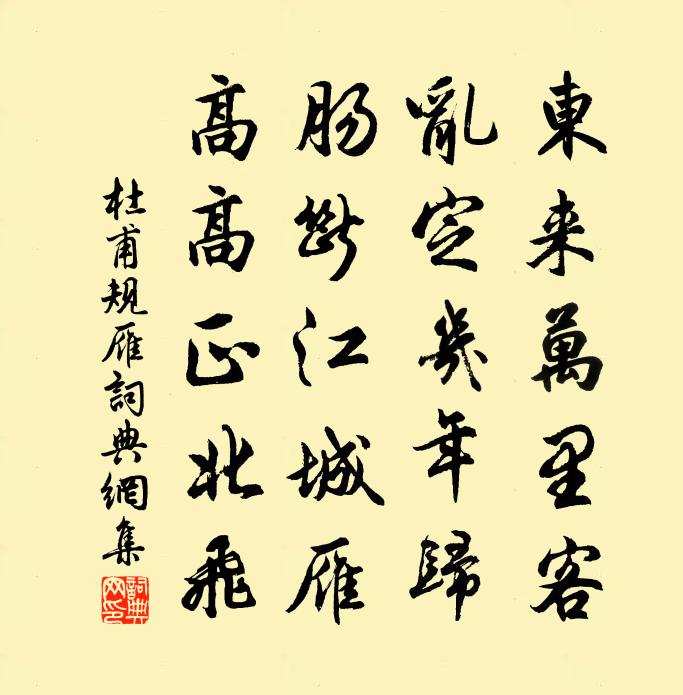 東来萬里客
亂定幾年歸
腸斷江城雁
高高正北飛
杜甫規雁詞典網集
詞典網印